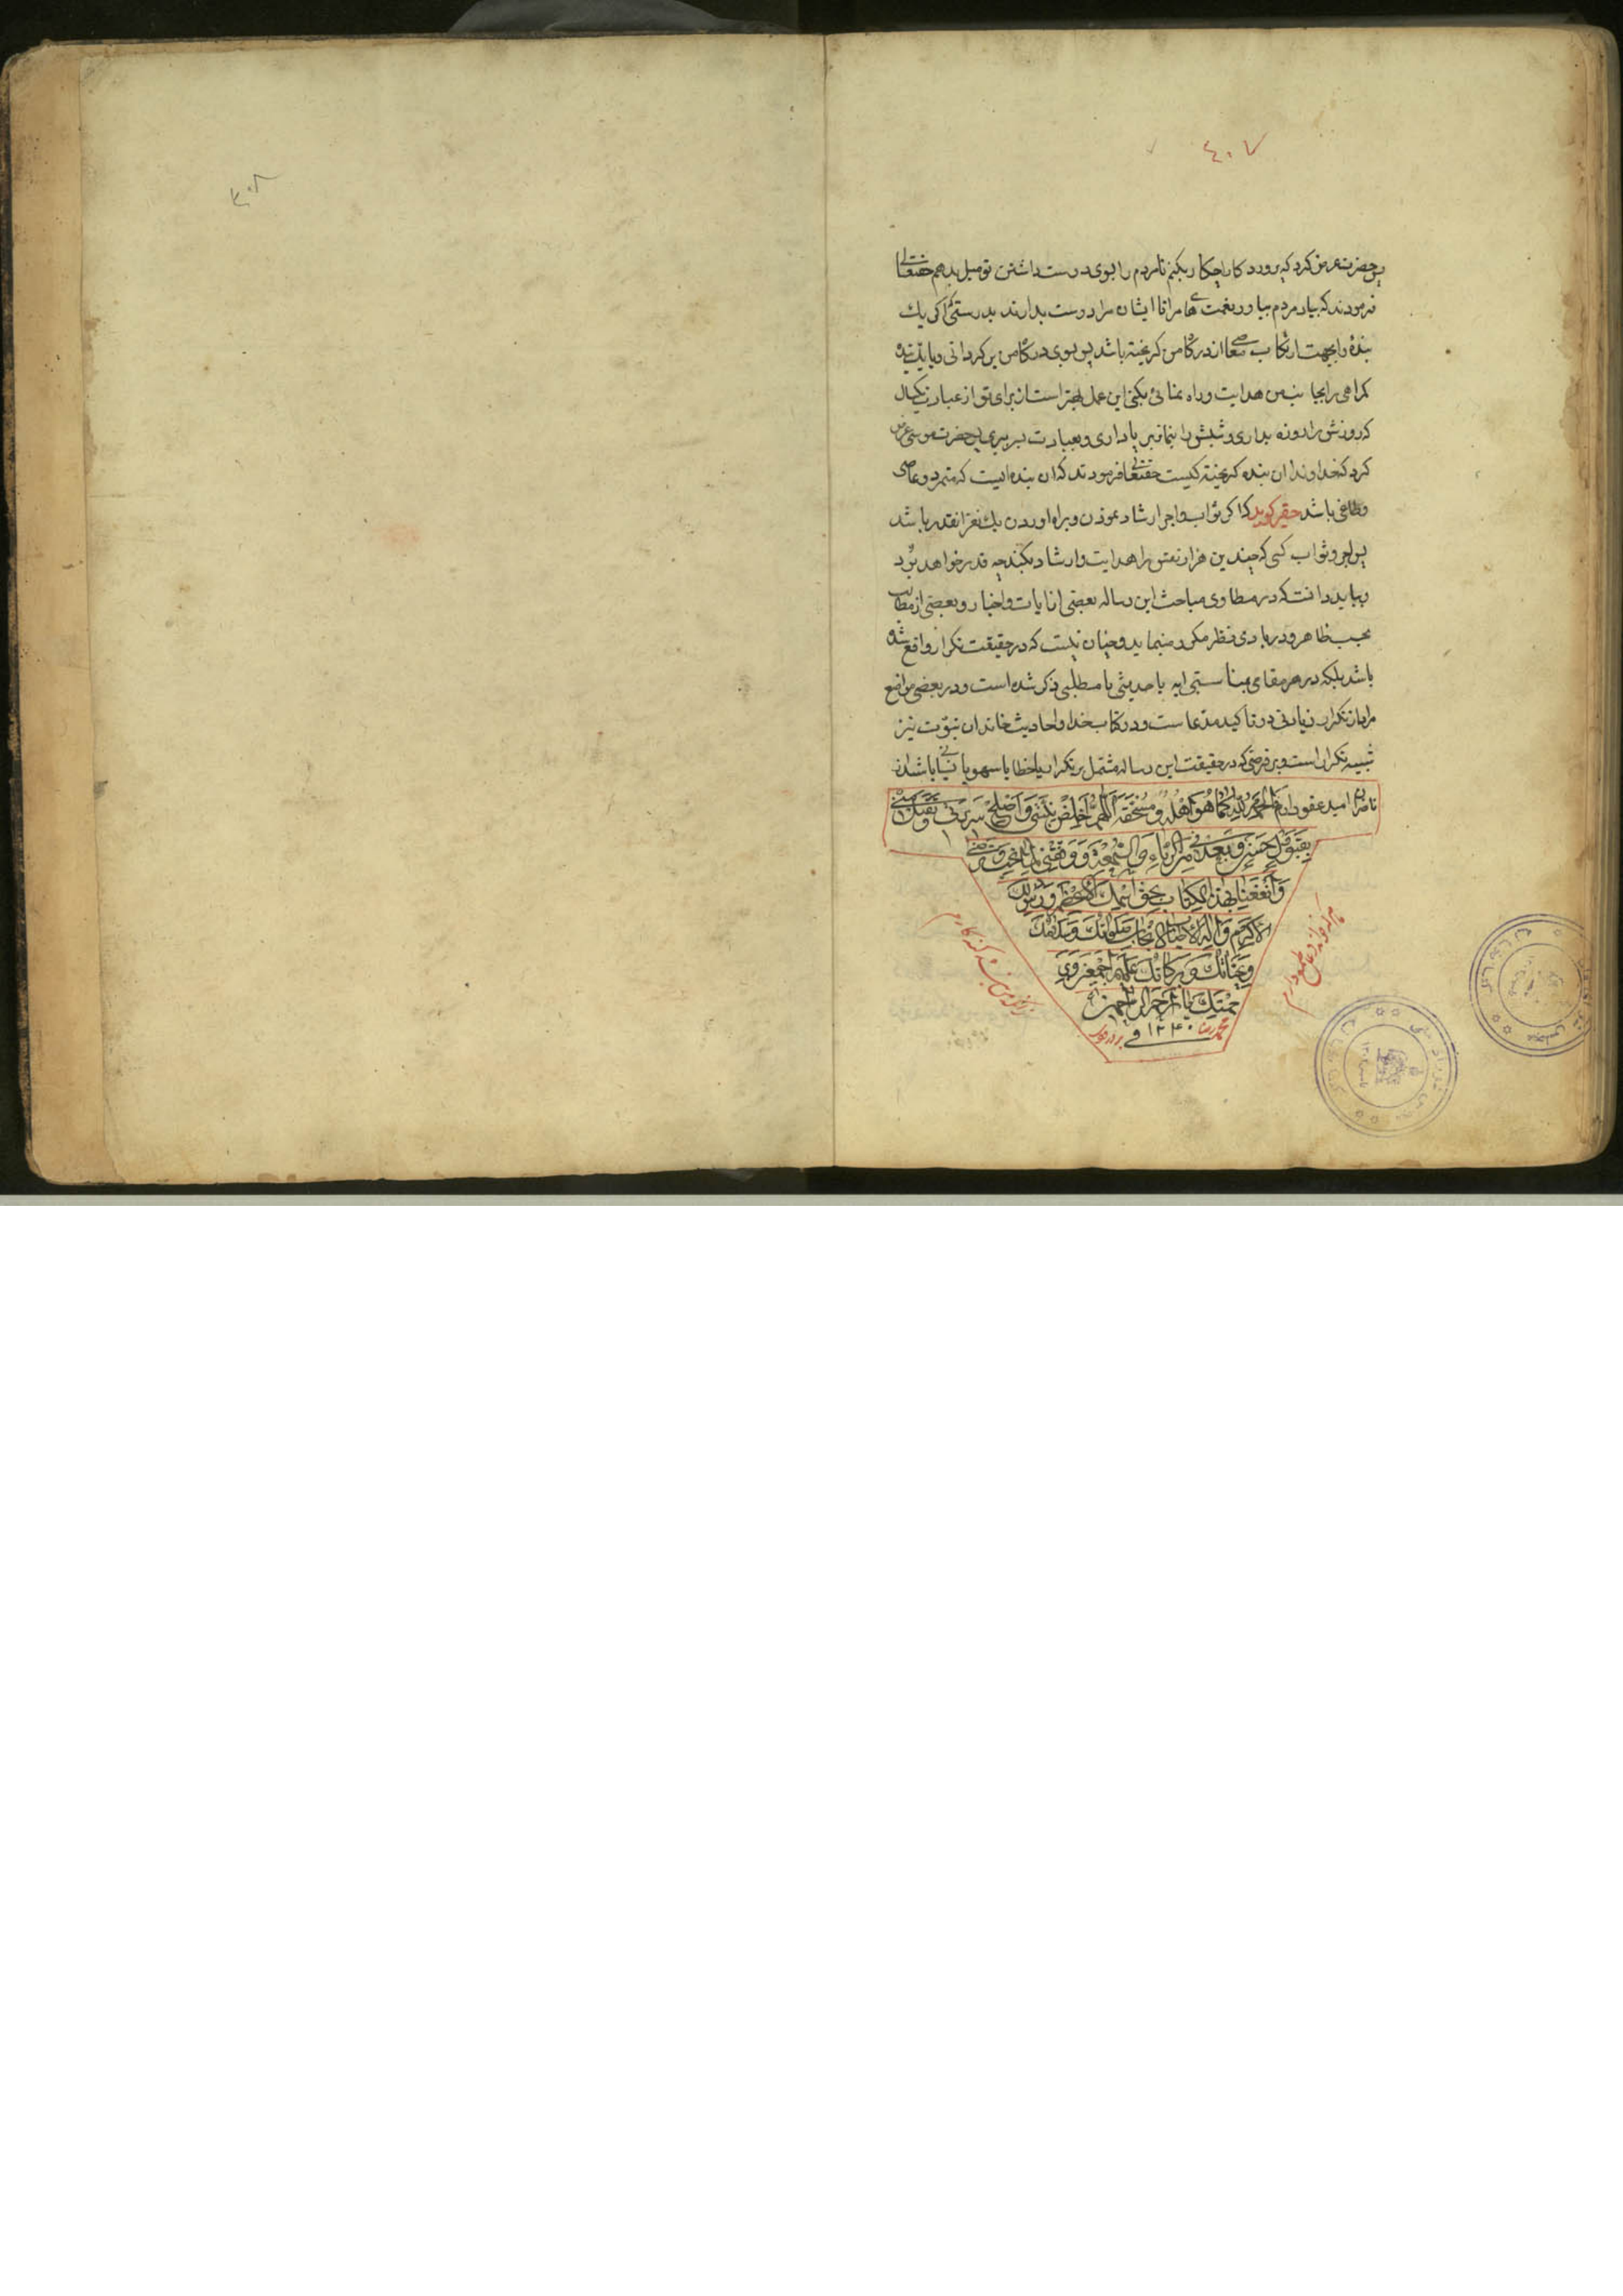 ٤٠٧
پس حضرت عرض کرد که پروردکارا چکار بکنم تا مردم را بسوی دوست داشتن تو میل بدهم حقتعالی
فرمودند که بیاد مردم بیاور نعمت های مرا تا ایشان مرا دوست بدارند بدرستیکه اکر یك
بندهٔ را بجهت ارتکاب معاصی از درکاه من کریخته باشد پس بسوی درکاه من برکردانی و یا یك بنده
کمراهی را بجانب من هدایت و راه نمائی بکنی این عمل بهتر است از برای تو از عبادت یکسال
که روزش را روزه بداری و شبش را بنماز برپا داری و بعبادت بسر بری پس حضرت موسی عرض
کرد که خداوندا ان بنده کریخته کیست حقتعالی فرمودند که ان بنده ایست که متمرد و عاصی
و طاغی باشد حقیر کوید که اکر ثواب و اجر ارشاد نمودن و براه اوردن یك نفر انقدر باشد
پس اجر و ثواب کسی که چندین هزار نفس را هدایت و ارشاد بکند چه قدر خواهد بود
و بباید دانست که در مطاوی مباحث این رساله بعضی از ایات و اخبار و بعضی از مطالب
بحسب ظاهر و در بادی نظر مکرر مینماید و چنان نیست که در حقیقت تکرار واقع شده
باشد بلکه در هر مقامی بمناسبتی ایه یا حدیثی یا مطلبی ذکر شده است و در بعضی مواضع
مراد از تکرار زیادتی در تاکید مدعاست و در کتاب خدا و احادیث خاندان نبوت نیز
شبیه تکرار است و بر فرضی که در حقیقت این رساله مشتمل بر تکرار یا خطا یا سهو یا نسیانی باشد از
ناظران امید عفو دارم فالحمد لله کما هو اهله و مستحقه اللهم اخلص نیتی و اصلح سریرتی و تقبل منی
بقبول حسن و بعدنی من الریاء و السمعة و وفقنی لما تحب و ترضی
وانفعنا بهذا الکتاب بحق اسمك الاعظم و رسولك
الاکرم و آله الاطیاب الانجاب صلواتك و سلامك
و تحیاتك و برکاتك علیهم اجمعین و
برحمتك یا ارحم الراحمین
محمد رضا ۱۲۴۰ فی
هر که خواند دعا طمع دارم
زانکه من بنده کنه کارم
٤٠٨